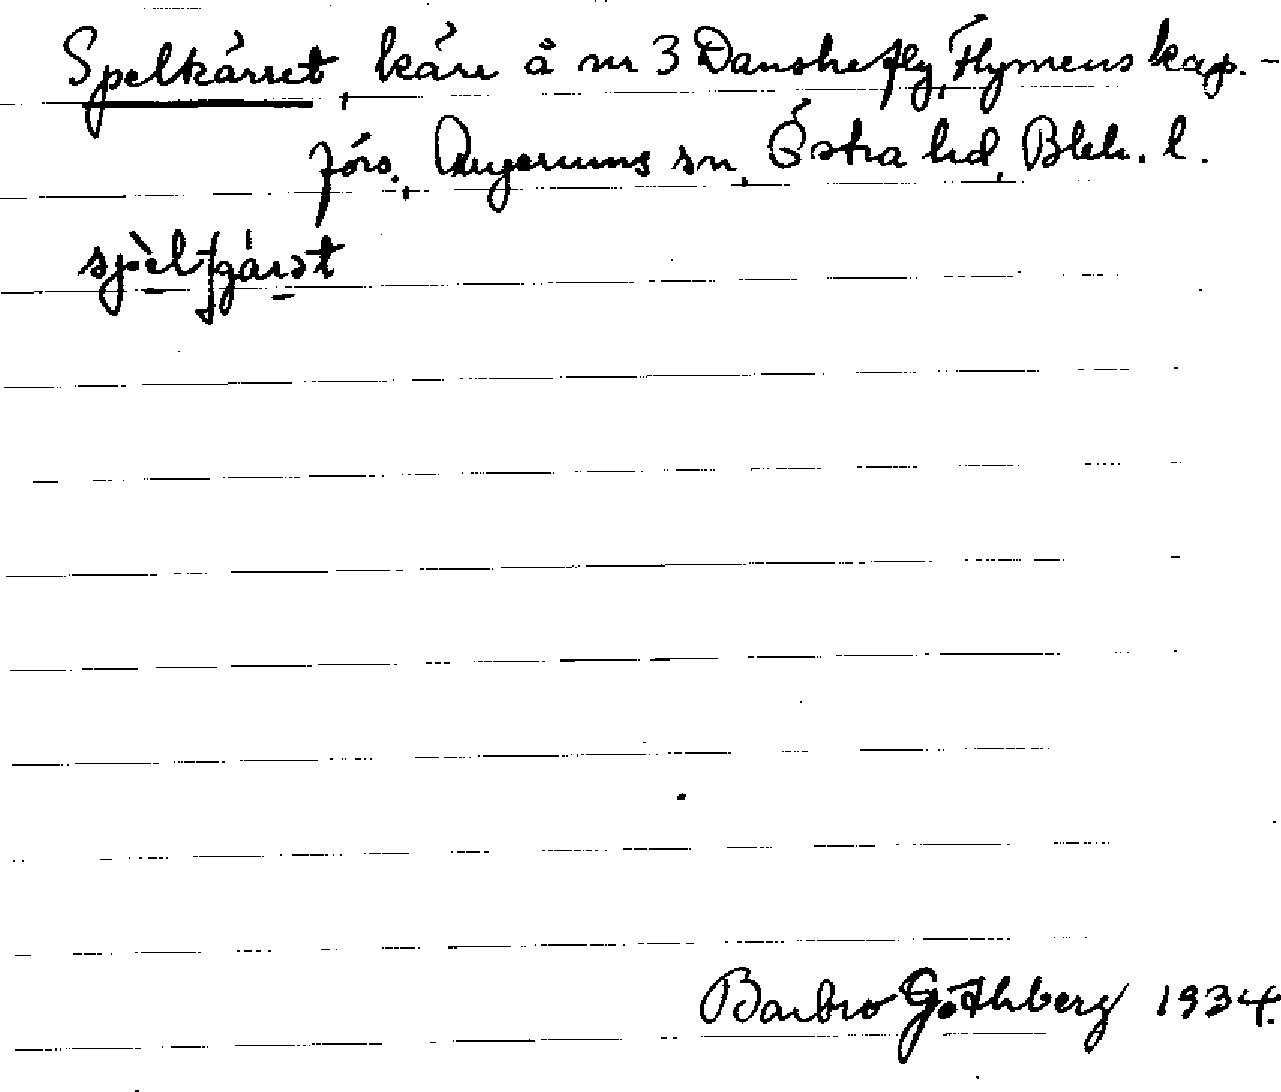 Spelkärret, kärr å nr 3 Danskefly, Flymens kap.-
förs., Augerums sn, Östra hd, Blek. l.
spèlʃgárət
Barbro Göthberg 1934.